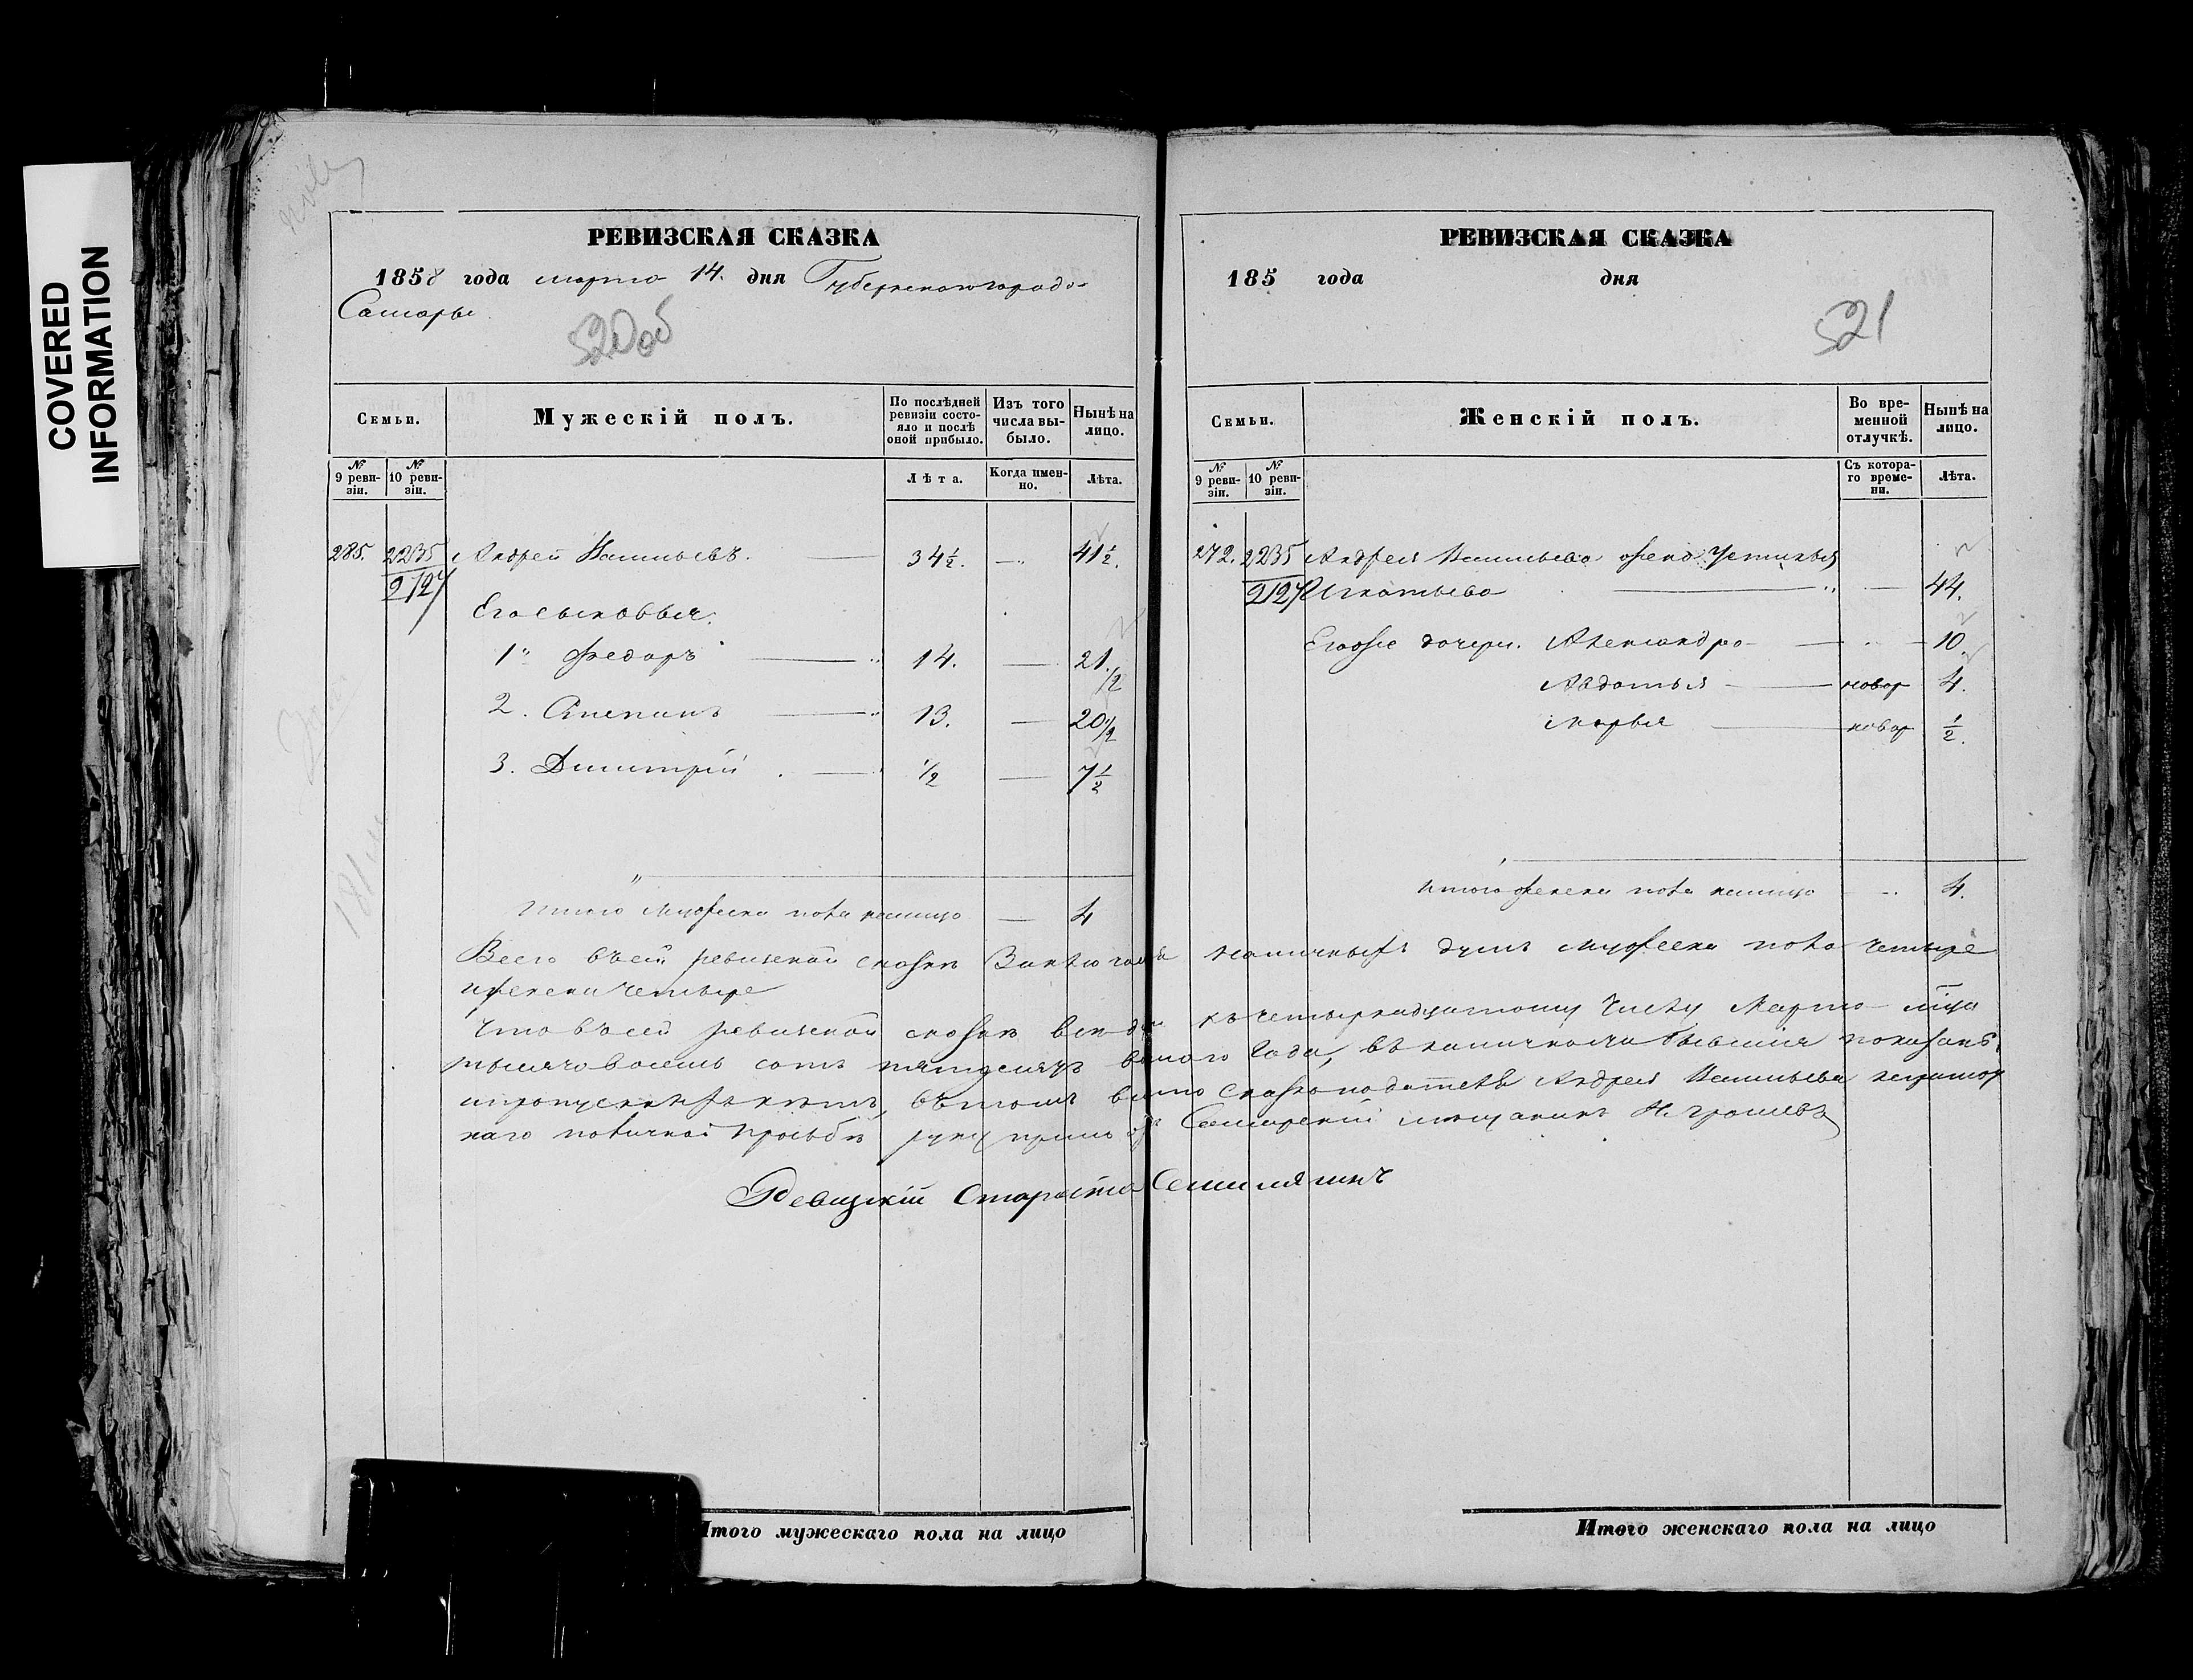 COVERED
INFORMATION
РЕВИЗСКАЯ СКАЗКА
1858 года марта 14. дня Губернскаго города
Самары
520об
Семьи.
Мужескій полъ.
По послѣдней ревизіи состояло и послѣ оной прибыло.
Изъ того числа выбыло.
Нынѣ на лицо.
№ 9 ревизіи.
№ 10 ревизіи.
Лѣта.
Когда именно.
Лѣта.
285. 2235 Андрей Васильевъ. 34½. — 41½.
2127
Его сыновья:
1. Федоръ 14. — 21½
2. Степанъ 13. — 20½
3. Димитрій ½ — 7½
Итого мужеска пола налицо — 4
РЕВИЗСКАЯ СКАЗКА
185 года дня
521
Семьи.
Женскій полъ.
Во временной отлучкѣ.
Нынѣ на лицо.
№ 9 ревизіи.
№ 10 ревизіи.
Съ котораго времени.
Лѣта.
272. 2235 Андрея Васильева жена Устинья
2127 Игнатьева — 44.
Его же дочери. Александра — 10.
Авдотья — новор 4.
Марья — новор ½.
Итого женска пола налицо 4.
Всего въ сей ревизской сказкѣ Заключается наличныхъ душъ мужеска пола четыре
и женска четыре
Что въ сей ревизской сказкѣ всѣ души къ четырнадцатому числу Марта мѣсяца
тысяча восемь сотъ пятдесятъ восмого года, въ наличности бывшія показаны
и пропущенныхъ нѣтъ, въ томъ вмѣсто сказкоподателя Андрея Васильева неграмот
наго по личной просьбѣ руку приложилъ Самарскій мѣщанинъ
Ревизскій Староста
Итого мужескаго пола на лицо
Итого женскаго пола на лицо